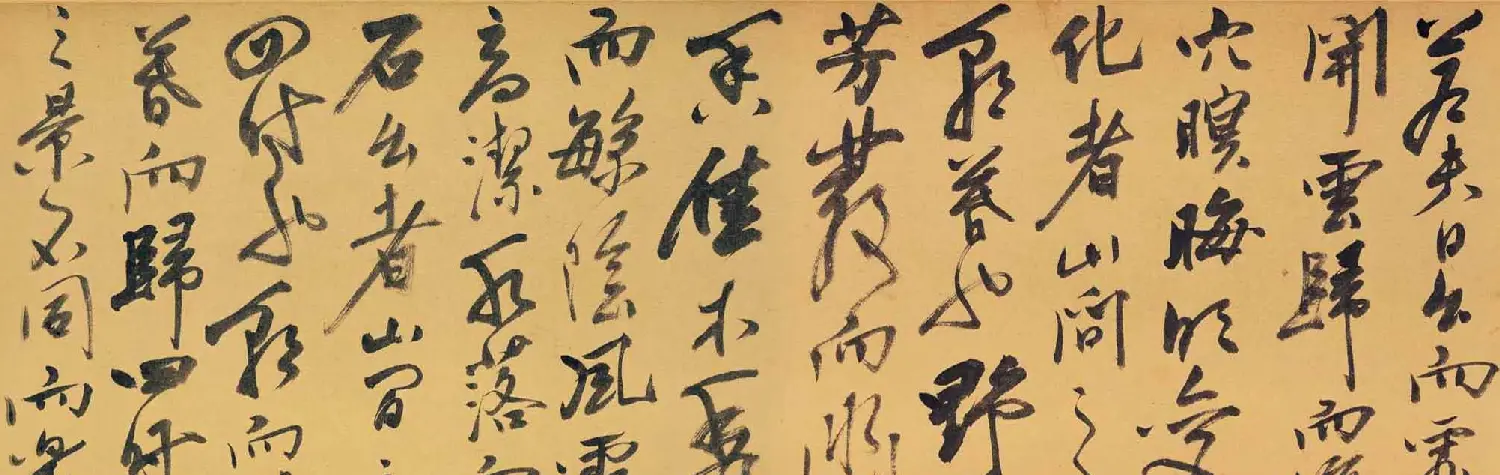 若夫日出而
開雲歸而
穴暝晦明變
化者山間之
朝暮也野
芳發而
香佳木秀
而繁陰風
高潔水落而
石出者山間
四時也朝而
暮而歸四時
之景不同而樂